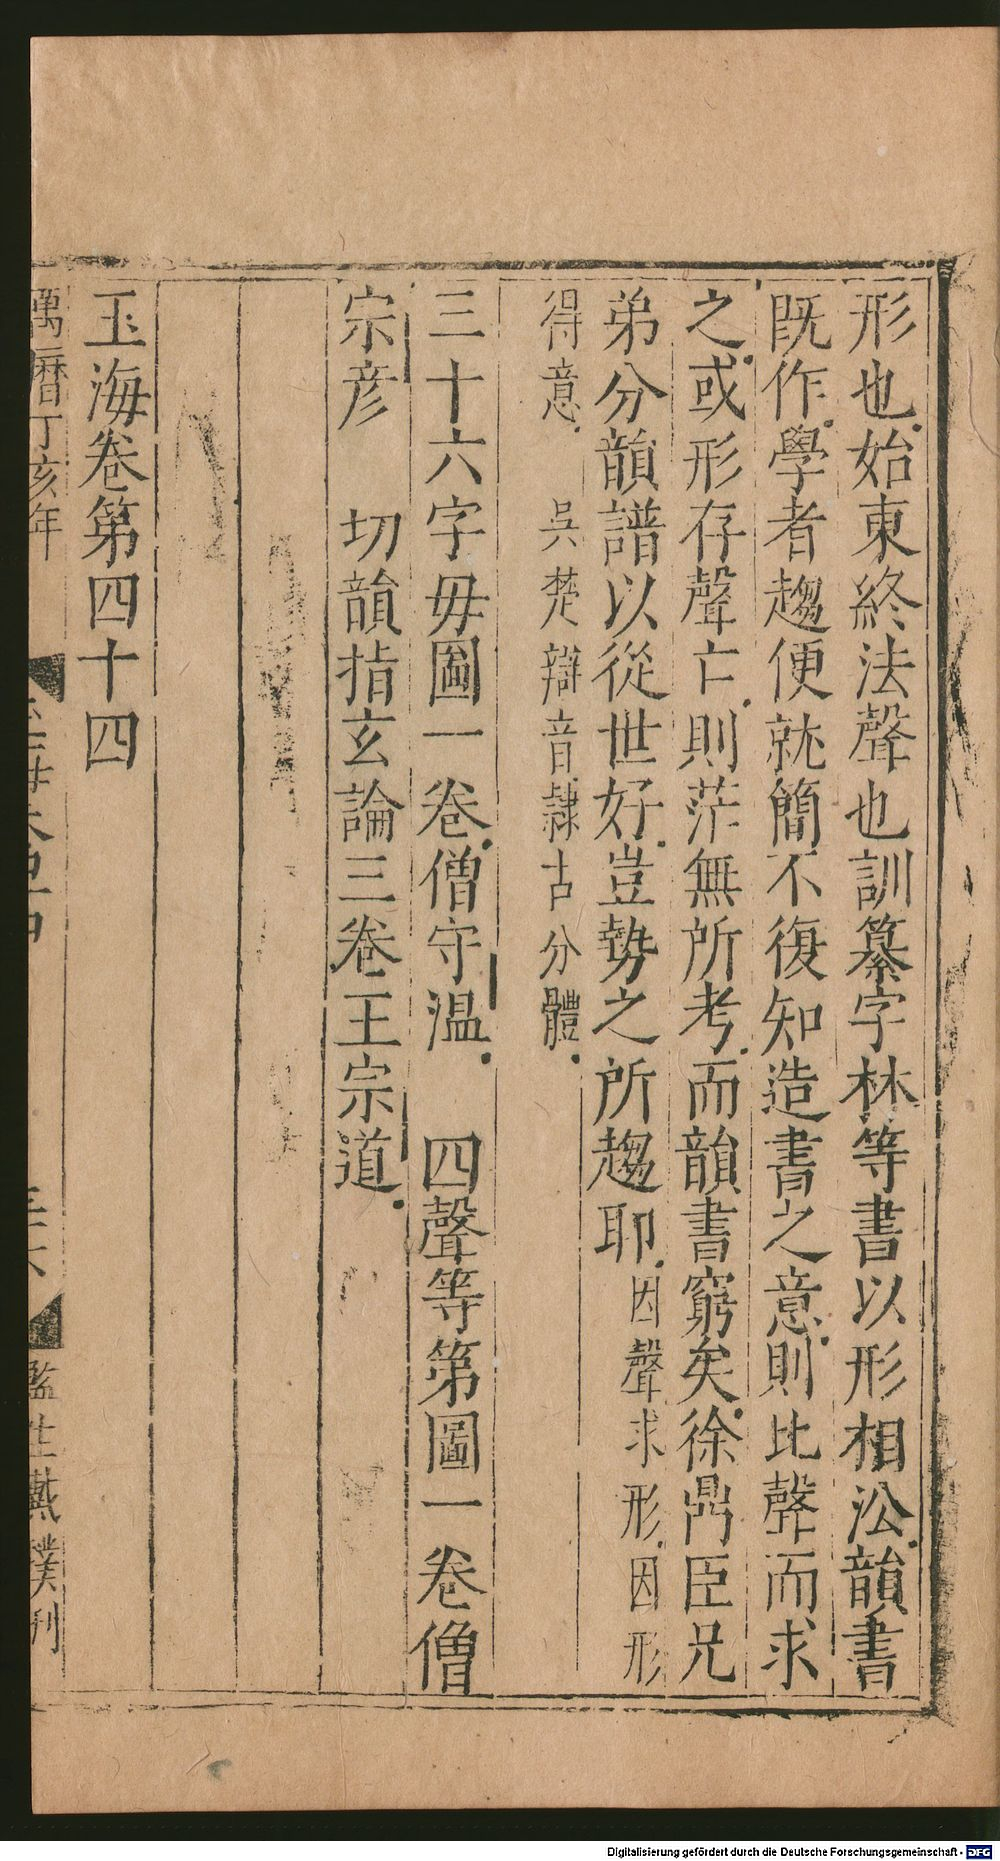 形也始東終法聲也訓纂字林等書以形相沿韻書
既作學者趨便就簡不復知造書之意則比聲而求
之或形存聲亡則茫無所考而韻書窮矣徐鼎臣兄
弟分韻譜以從世好豈勢之所趨耶因聲求形因形
得意 吳楚辯音隷古分體
三十六字毋圖一卷僧守温 四聲等第圖一卷僧
宗彦 切韻指玄論三卷王宗道
玉海卷第四十四
萬曆丁亥年 監生戴撲刊
Digitalisierung gefördert durch die Deutsche Forschungsgemeinschaft - DFG